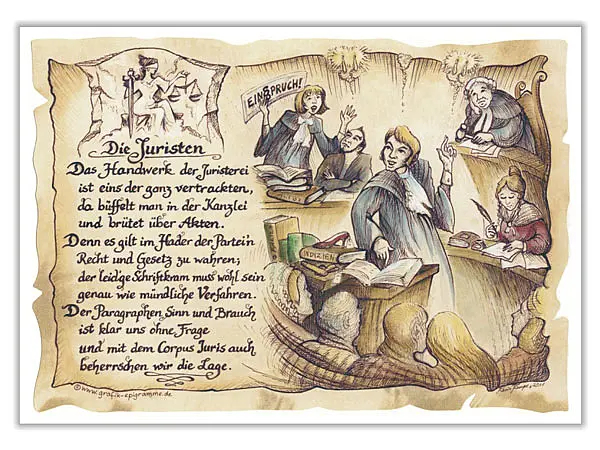 EIN§PRUCH!
Die Juristen
Das Handwerk der Juristerei
ist eins der ganz vertrackten,
da büffelt man in der Kanzlei
und brütet über Akten.
Denn es gilt im Hader der Partei'n
Recht und Gesetz zu wahren;
der leidge Schriftkram muss wohl sein
genau wie mündliche Verfahren.
Der Paragraphen Sinn und Brauch
ist klar uns ohne Frage
und mit dem Corpus Juris auch
beherrschen wir die Lage.
INDIZIEN
©www.grafik-epigramme.de